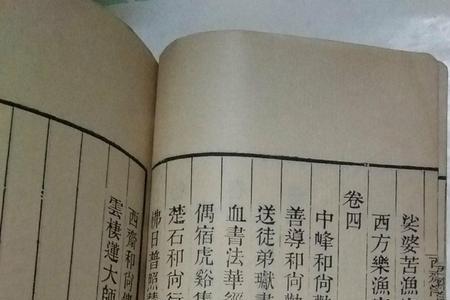 娑婆苦漁
西方樂漁
卷四
中峰和尚勸
善導和尚勸
送徒弟瓛書
血書法華經
偶宿虎谿集
楚石和尚行
佛日普照
西齋和尚
雲棲蓮大師